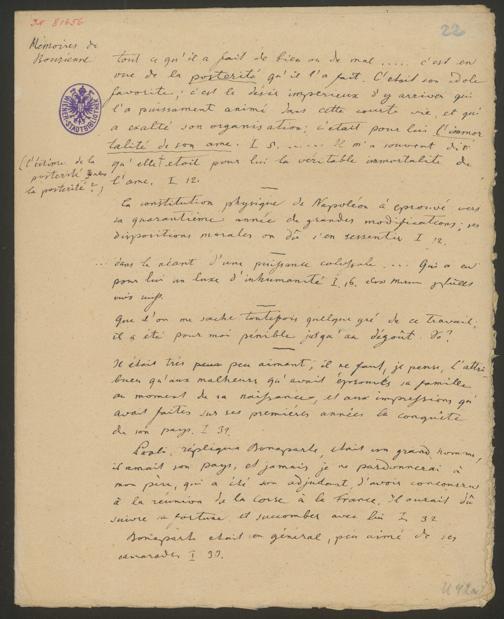 22
Mémoires de
Bourienne
tout ce qu'il a fait de bien ou de mal ..... c'est en
vue de la posterité qu'il l'a fait. C'était son idole
favorite; c'est le désir impérieux d'y arriver qui
l'a puissament animé dans cette courte vie, et qui
a exalté son organisation; c'était pour lui l'immor
talité de son ame. I 5. ...... Il m'a souvent dit
qu'elle était pour lui la véritable immortalité de
l'ame. I 12.
(l'estime de la
posterité
la posterité?)
WIENER STADTBIBLIOTHEK
La constitution physique de Napoléon a éprouvé vers
sa quarantième année de grandes modifications; ses
dispositions morales on dû s'en ressentir I 12.
... dans le néant d'une puissance colossale ... Qui a eu
pour lui un luxe d'inhumanité I 16.
Que l'on me sache toutefois quelque gré de ce travail,
il a été pour moi pénible jusqu'au dégoût. do?
Il était très peu aimant; il ne faut, je pense, l'attri
buer qu'aux malheurs qu'avait éprouvés sa famille
au moment de sa naissance, et aux impressions qu'
avait faites sur ses premières années la conquête
de son pays. I 31.
Paoli, répliqua Bonaparte, était un grand homme,
il aimait son pays, et jamais je ne pardonnerai à
mon père, qui a été son adjudant, d'avoir concouru
à la réunion de la Corse à la France. Il aurait dû
suivre sa fortune et succomber avec lui I. 32
Bonaparte était en général, peu aimé de ses
camarades I 33.